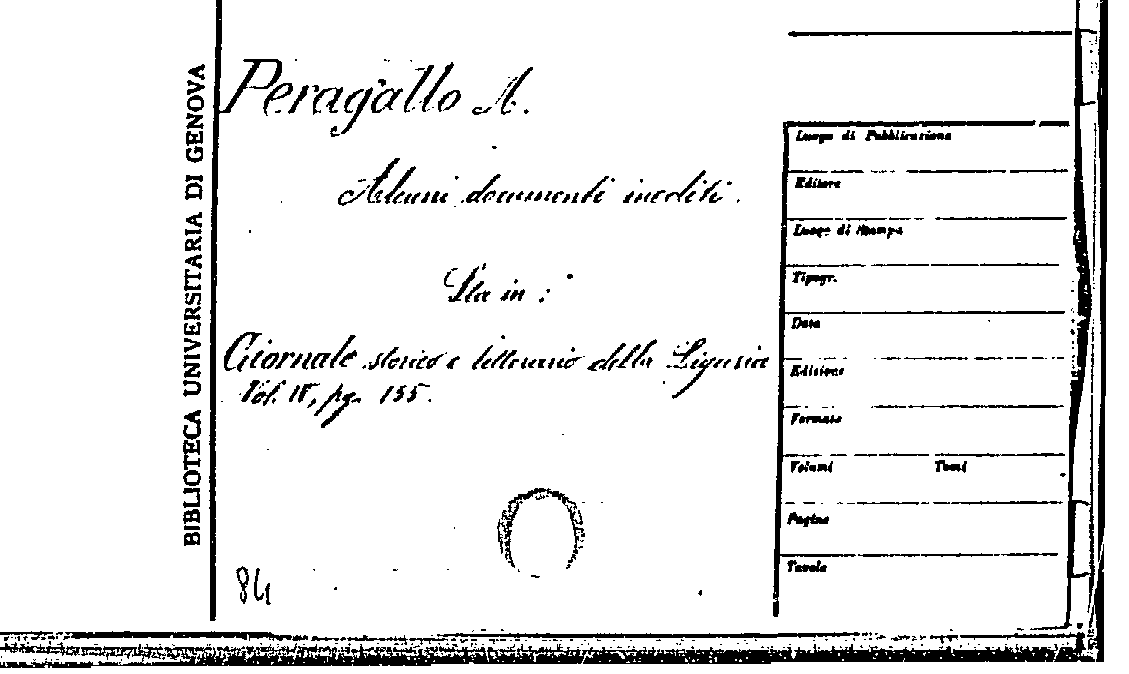 BIBLIOTECA UNIVERSITARIA DI GENOVA
Peragallo A.
Alcuni documenti inediti.
Sta in:
Giornale storico e letterario della Liguria
Vol. IV, pg. 155.
84
Luogo di Pubblicazione
Editore
Luogo di Stampa
Tipogr.
Data
Edizione
Formato
Volumi Tomi
Pagine
Tavole